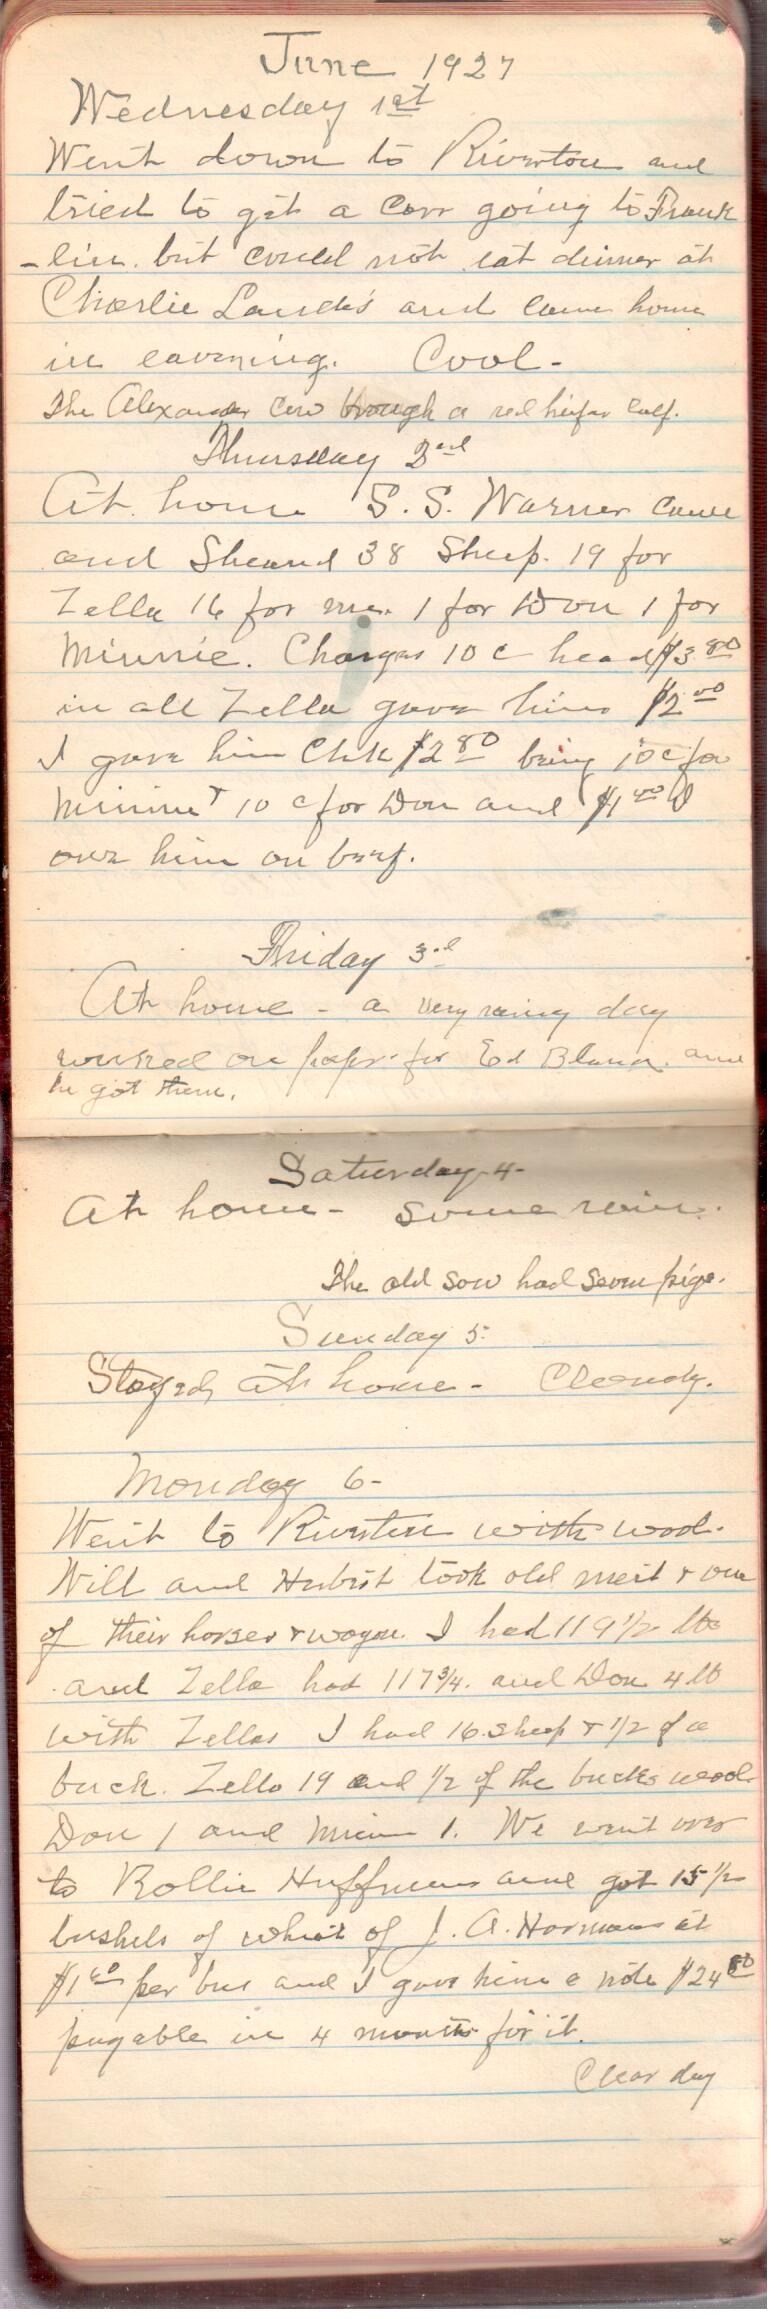 June 1927
Wednesday 1st
Went down to Riverton and
tried to get a carr going to Frank
-lin. but could not eat dinner at
Charlie Landes and came home
in eavening. Cool-
The Alexander cow brough a red heifer calf.
Thursday 2nd
At home S. S. Warner came
and Sheard 38 Sheep. 19 for
Zella 16 for me. 1 for Don 1 for
Minnie. Charges 10 c head $3.80
in all Zella gave him $2.00
I gave him Chk $2.80 being 10 c for
Minnie + 10 c for Don and $1.00 I
owe him on beef.
Friday 3rd
At home - a very rainy day
worked on papr for Ed Bland. and
he got them.
Saturday 4-
At home - some rain.
The old sow had seven pigs.
Sunday 5-
Stayed at home - Cloudy.
Monday 6-
Went to Riverton with wool.
Will and Herbert took old meit + one
of their horses + wagon. I had 119 1/2 lbs
and Zella had 117 3/4. and Don 4 lb
with Zellas I had 16 sheep + 1/2 of a
buck. Zella 19 and 1/2 of the bucks wool.
Don 1 and Minnie 1. We went over
to Rollie Huffmans and got 15 1/2
bushels of wheat of J. A. Harmans at
$1.60 per bus and I gave him a note $24.80
payable in 4 months for it.
Clear day